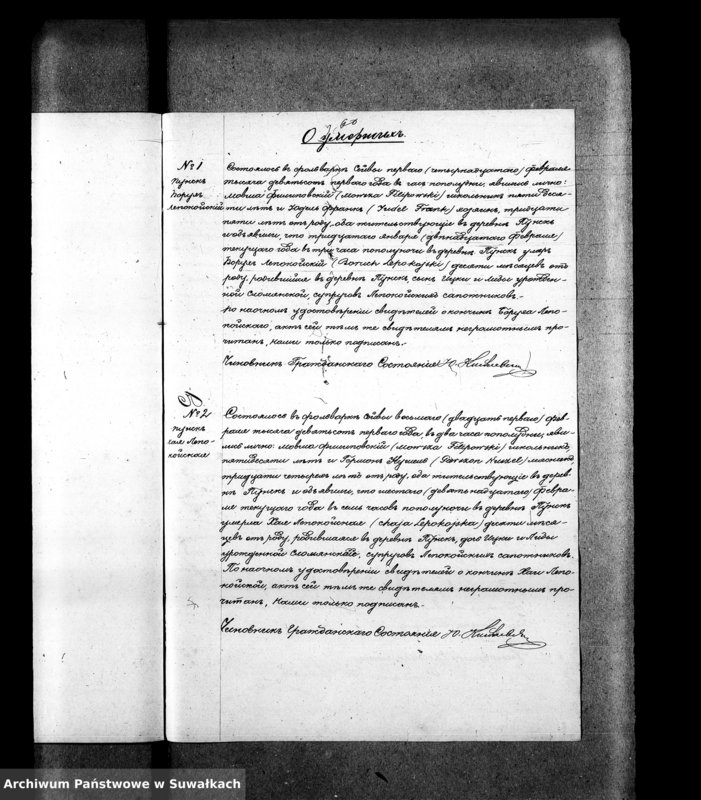 О умершихъ.
№ 1
Пунскъ
Борухъ
Лепокойскій
Состоялось въ фольваркѣ Сейвы перваго (четырнадцатаго) февраля
тысяча девятьсотъ перваго года въ часъ пополудни, явились лично:
Мовша Филиповскій (Mowsza Filipowski) школьникъ пятидеся-
ти лѣтъ и Юдель Франкъ (Judel Frank) маякъ, тридцати
пяти лѣтъ отъ роду, оба жительствующіе въ деревнѣ Пунскъ
и объявили, что тридцатаго января (двѣнадцатаго февраля)
текущаго года въ три часа пополуночи въ деревнѣ Пунскъ умеръ
Борухъ Лепокойскій (Boruch Lepokojski) десяти мѣсяцевъ отъ
роду, родившійся въ деревнѣ Пунскъ, сынъ Ицки и Лиды урожден-
ной Сломянской, супруговъ Лепокойскихъ сапожниковъ.-
По наочномъ удостовѣреніи свидѣтелей о кончинѣ Боруха Лепо-
койскаго, актъ сей тѣмъ же свидѣтелямъ неграмотнымъ про-
читанъ, Нами только подписанъ.-
Чиновникъ Гражданскаго Состоянія
№ 2
Пунскъ
Хая Лепо-
койская
Состоялось въ фольваркѣ Сейвы восьмаго (двадцать перваго) фев-
раля тысяча девятьсотъ перваго года, въ два часа пополудни, яви-
лись лично: Мовша Филиповскій (Mowsza Filipowski) школьникъ,
пятидесяти лѣтъ и
тридцати четырехъ лѣтъ отъ роду, оба жительствующіе въ дерев-
нѣ Пунскъ и объявили, что шестаго (девятнадцатаго) февра-
ля текущаго года въ семь часовъ пополуночи въ деревнѣ Пунскъ
умерла Хая Лепокойская (Chaja Lepokojska) десяти мѣся-
цевъ отъ роду, родившаяся въ деревнѣ Пунскъ, дочь Ицки и Лиды
урожденной Сломянской, супруговъ Лепокойскихъ сапожниковъ.
По наочномъ удостовѣреніи свидѣтелей о кончинѣ Хаи Лепо-
койской, актъ сей тѣмъ же свидѣтелямъ неграмотнымъ про-
читанъ, Нами только подписанъ.-
Чиновникъ Гражданскаго Состоянія
Archiwum Państwowe w Suwałkach